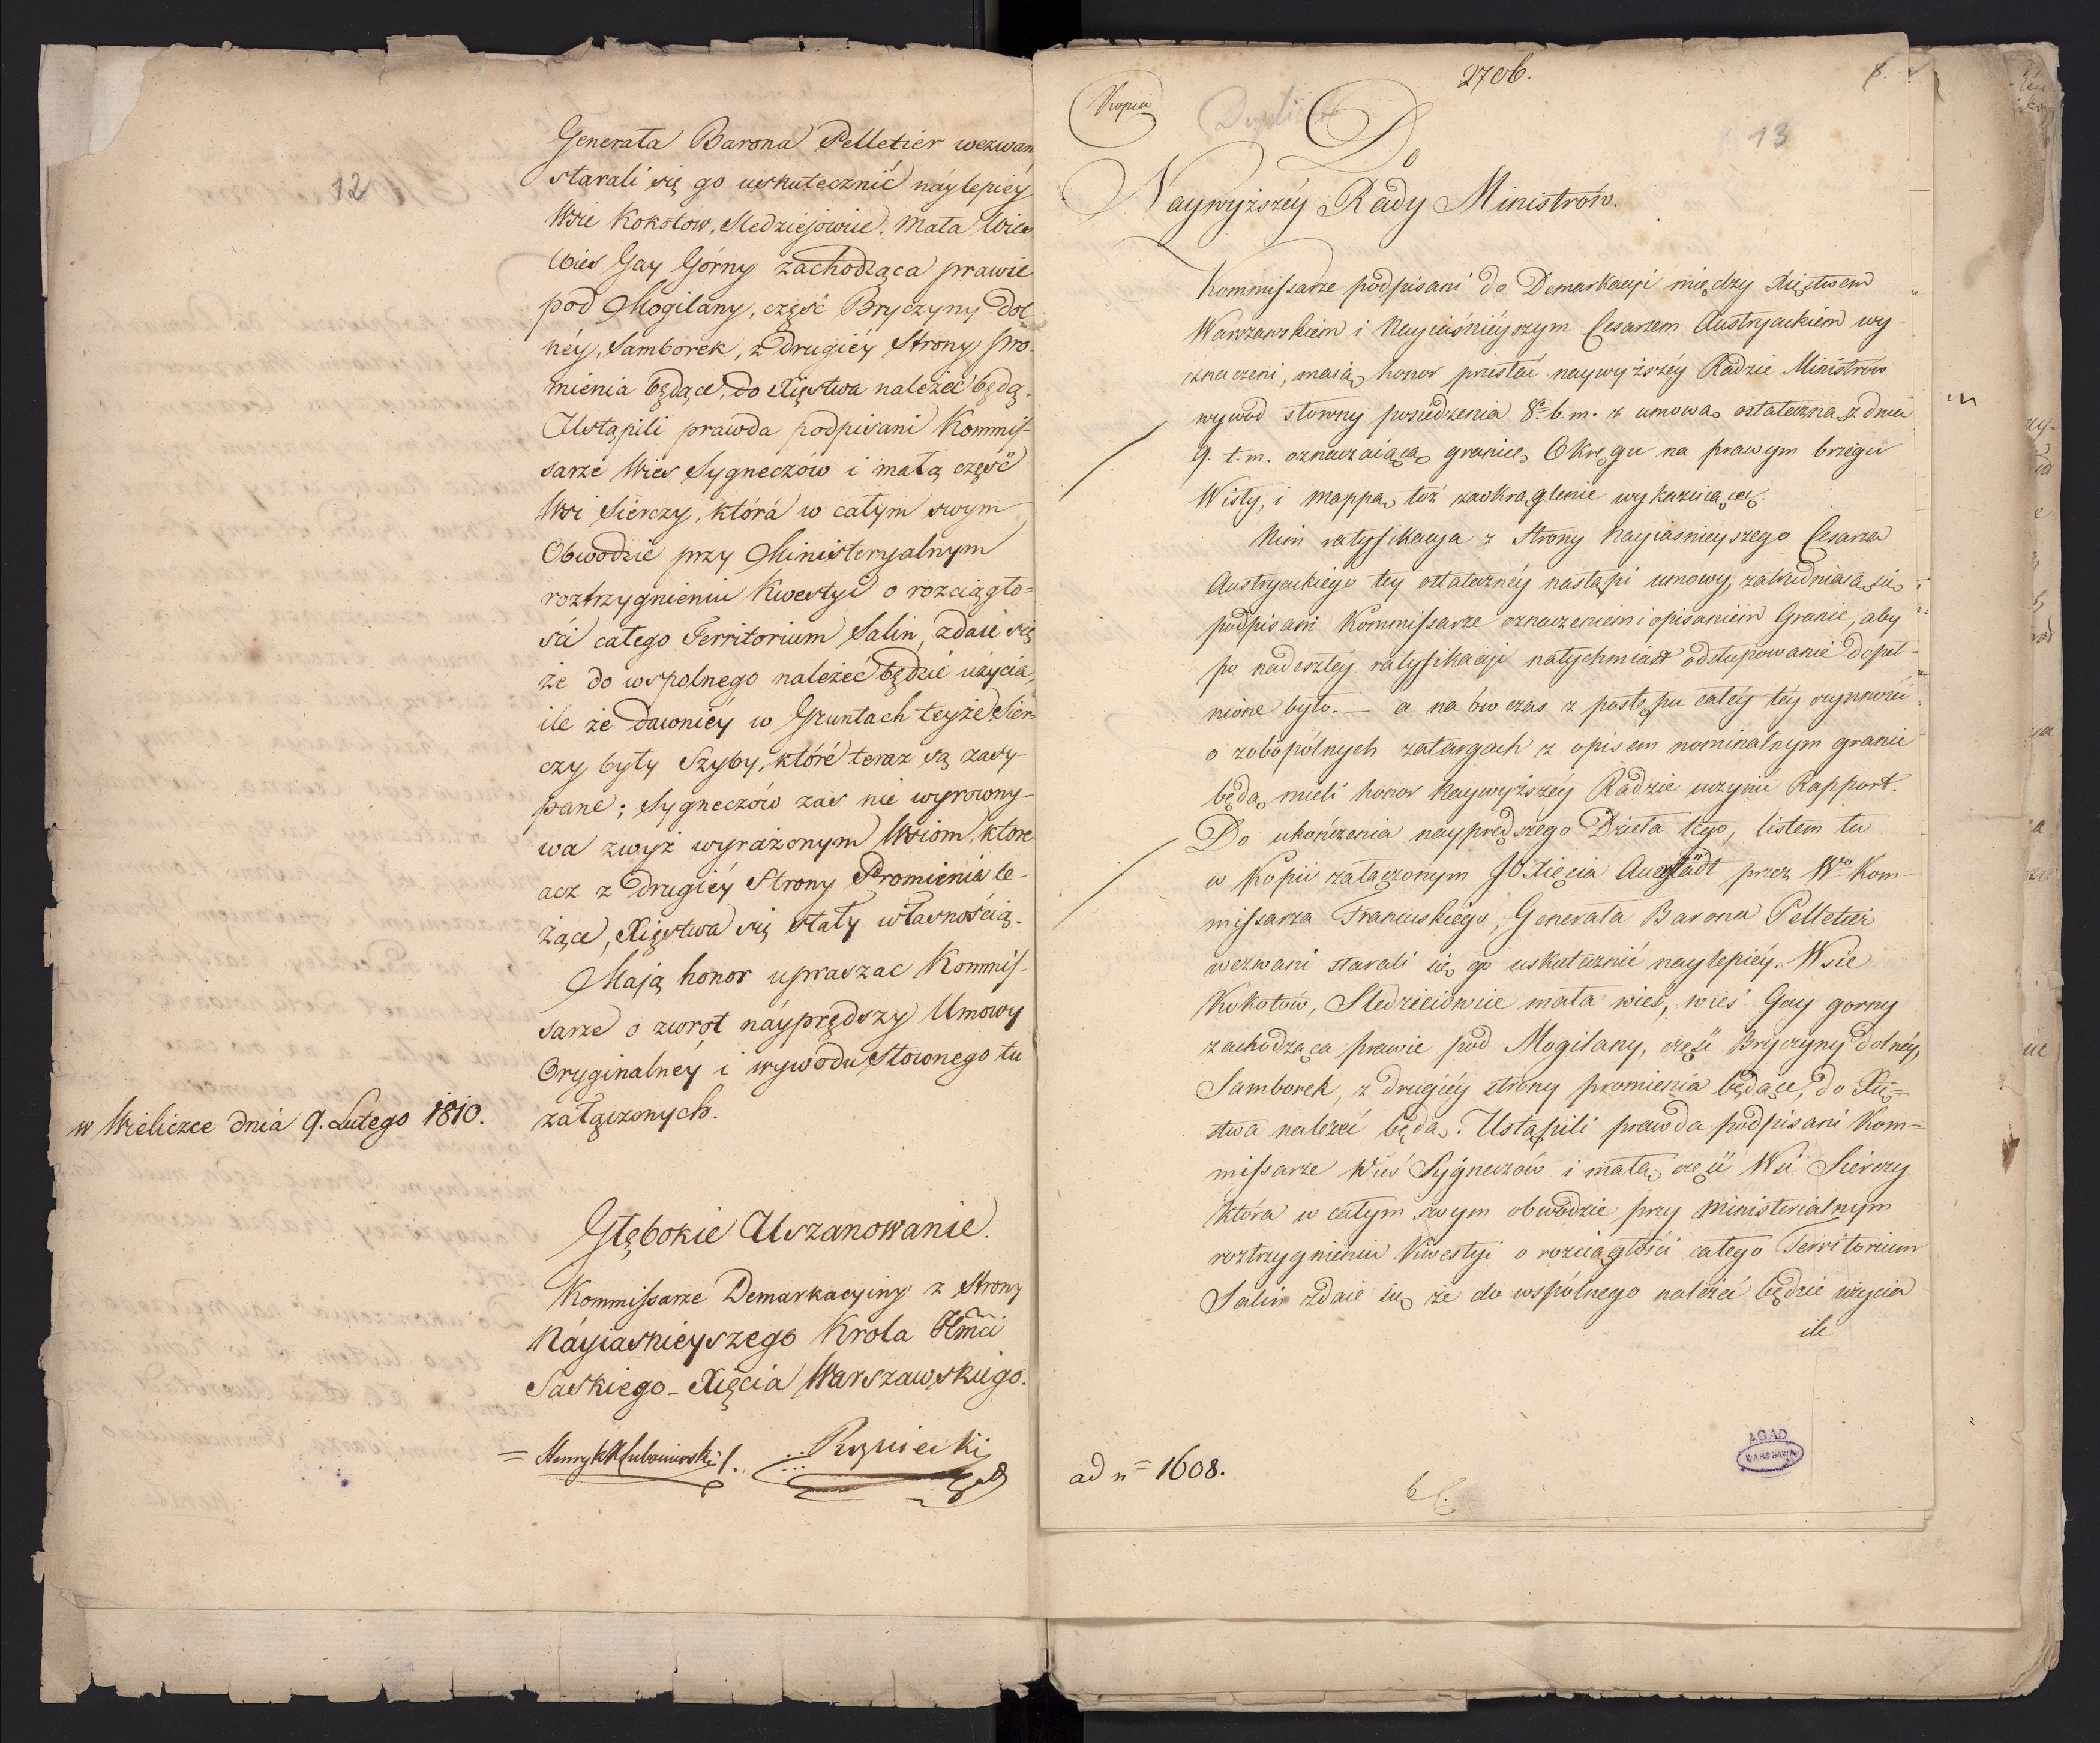 12
Generała Barona Pelletier wezwan
starali się go uskutecznić náylepiéy
Wsie Kokotow, Sledziejowice, Mała Wies
Wies Gay Górny zachodząca prawie
pod Mogilany, część Bryczyny Dol
néy, Samborek, z drugiéy Strony Pro-
mienia będące, do Xięstwa należeć będą.
Ustąpili prawda podpisani Kommis-
sarze Wies Sygneczow i małą część
Wsi Sierczy, którá w całym swym
Obwodzie przy Ministeryalnym
roztrzygnieniu Kwestyi o rozciągło=
ści całego Territorium Salin, zdaie się
że do wspolnego należeć będzie użycia,
ile że dawniéy w Gruntach teyże Sier=
czy były Szyby, któré teraz są zasy-
pane; Sygneczów zas nie wyrowny-
wa zwyż wyrażonym Wsiom, ktore
acz z drugiéy Strony Promienia le-
żące, Xięstwa się stały własnością.
Mają honor upraszac Kommis-
sarze o zwrot náyprędszy Umowy
Oryginalnéy i wywodu Słownego tu
załączonych.
w Wieliczce dniá 9. Lutego 1810.
Głębokie Uszanowanie.
Kommissarze Demarkacyiny z Strony
Náyiasnieyszego Krola JEmci
Saskiego - Xięcia Warszawskiego.
= Henryk Lubomirski
Rozniecki
2706.
8.
Kopia
Duplicat
13
Do
Naywyższéy Rady Ministrów.
Kommissarze podpisani do Demarkacyi między Xięstwem
Warszawskiem i Nayiaśniéyszym Cesarzem Austryackiem wy-
znaczeni, maią honor przesłać naywyższéy Radzie Ministrów
wywod słowny posiedzenia 8º b. m. z umową ostateczną z dnia
9. t. m. oznaczaiącą granice Okręgu na prawym brzegu
Wisły, i mappą toż zaokrąglenie wykazuiącą.
Nim ratyfikacya z Strony Nayiasnieyszego Cesarza
Austryackiego tey ostateczney nastąpi umowy, zatrudniaią się
podpisani Kommissarze oznaczeniem i opisaniem Granic, aby
po nadeszłéy ratyfikacyi natychmiast odstupowanie dopeł-
nione było. — a na ów czas z postępu całéy téy czynności
o zobopólnych zatargach z opisem nominalnym granic
będą mieli honor Naywyższéy Radzie uczynić Rapport.
Do ukończenia nayprędszego Dzieła tego, listem tu
w Kopii załączonym JO Xięcia Auerstädt przez Wº Kom-
missarza Francuskiego, Generała Barona Pelletier
wezwani starali się go uskutecznić naylepiéy. Wsie
Kokotow, Sledzieiowice mała wieś, wieś Gay gorny
zachodząca prawie pod Mogilany, część Bryczyny dolnéy,
Samborek, z drugiéy strony promienia będące, do Xię=
stwa należeć będą. Ustąpili prawda podpisani Kom=
missarze Wieś Sygneczów i małą część Wsi Sierczy
która w całym swym obwodzie przy ministerialnym
roztrzygnieniu Kwestyi o rozciągłości całego Territorium
Salin zdaie się że do wspólnego należeć będzie użycia
ile
ad nº 1608.
AGAD
WARSZAWA